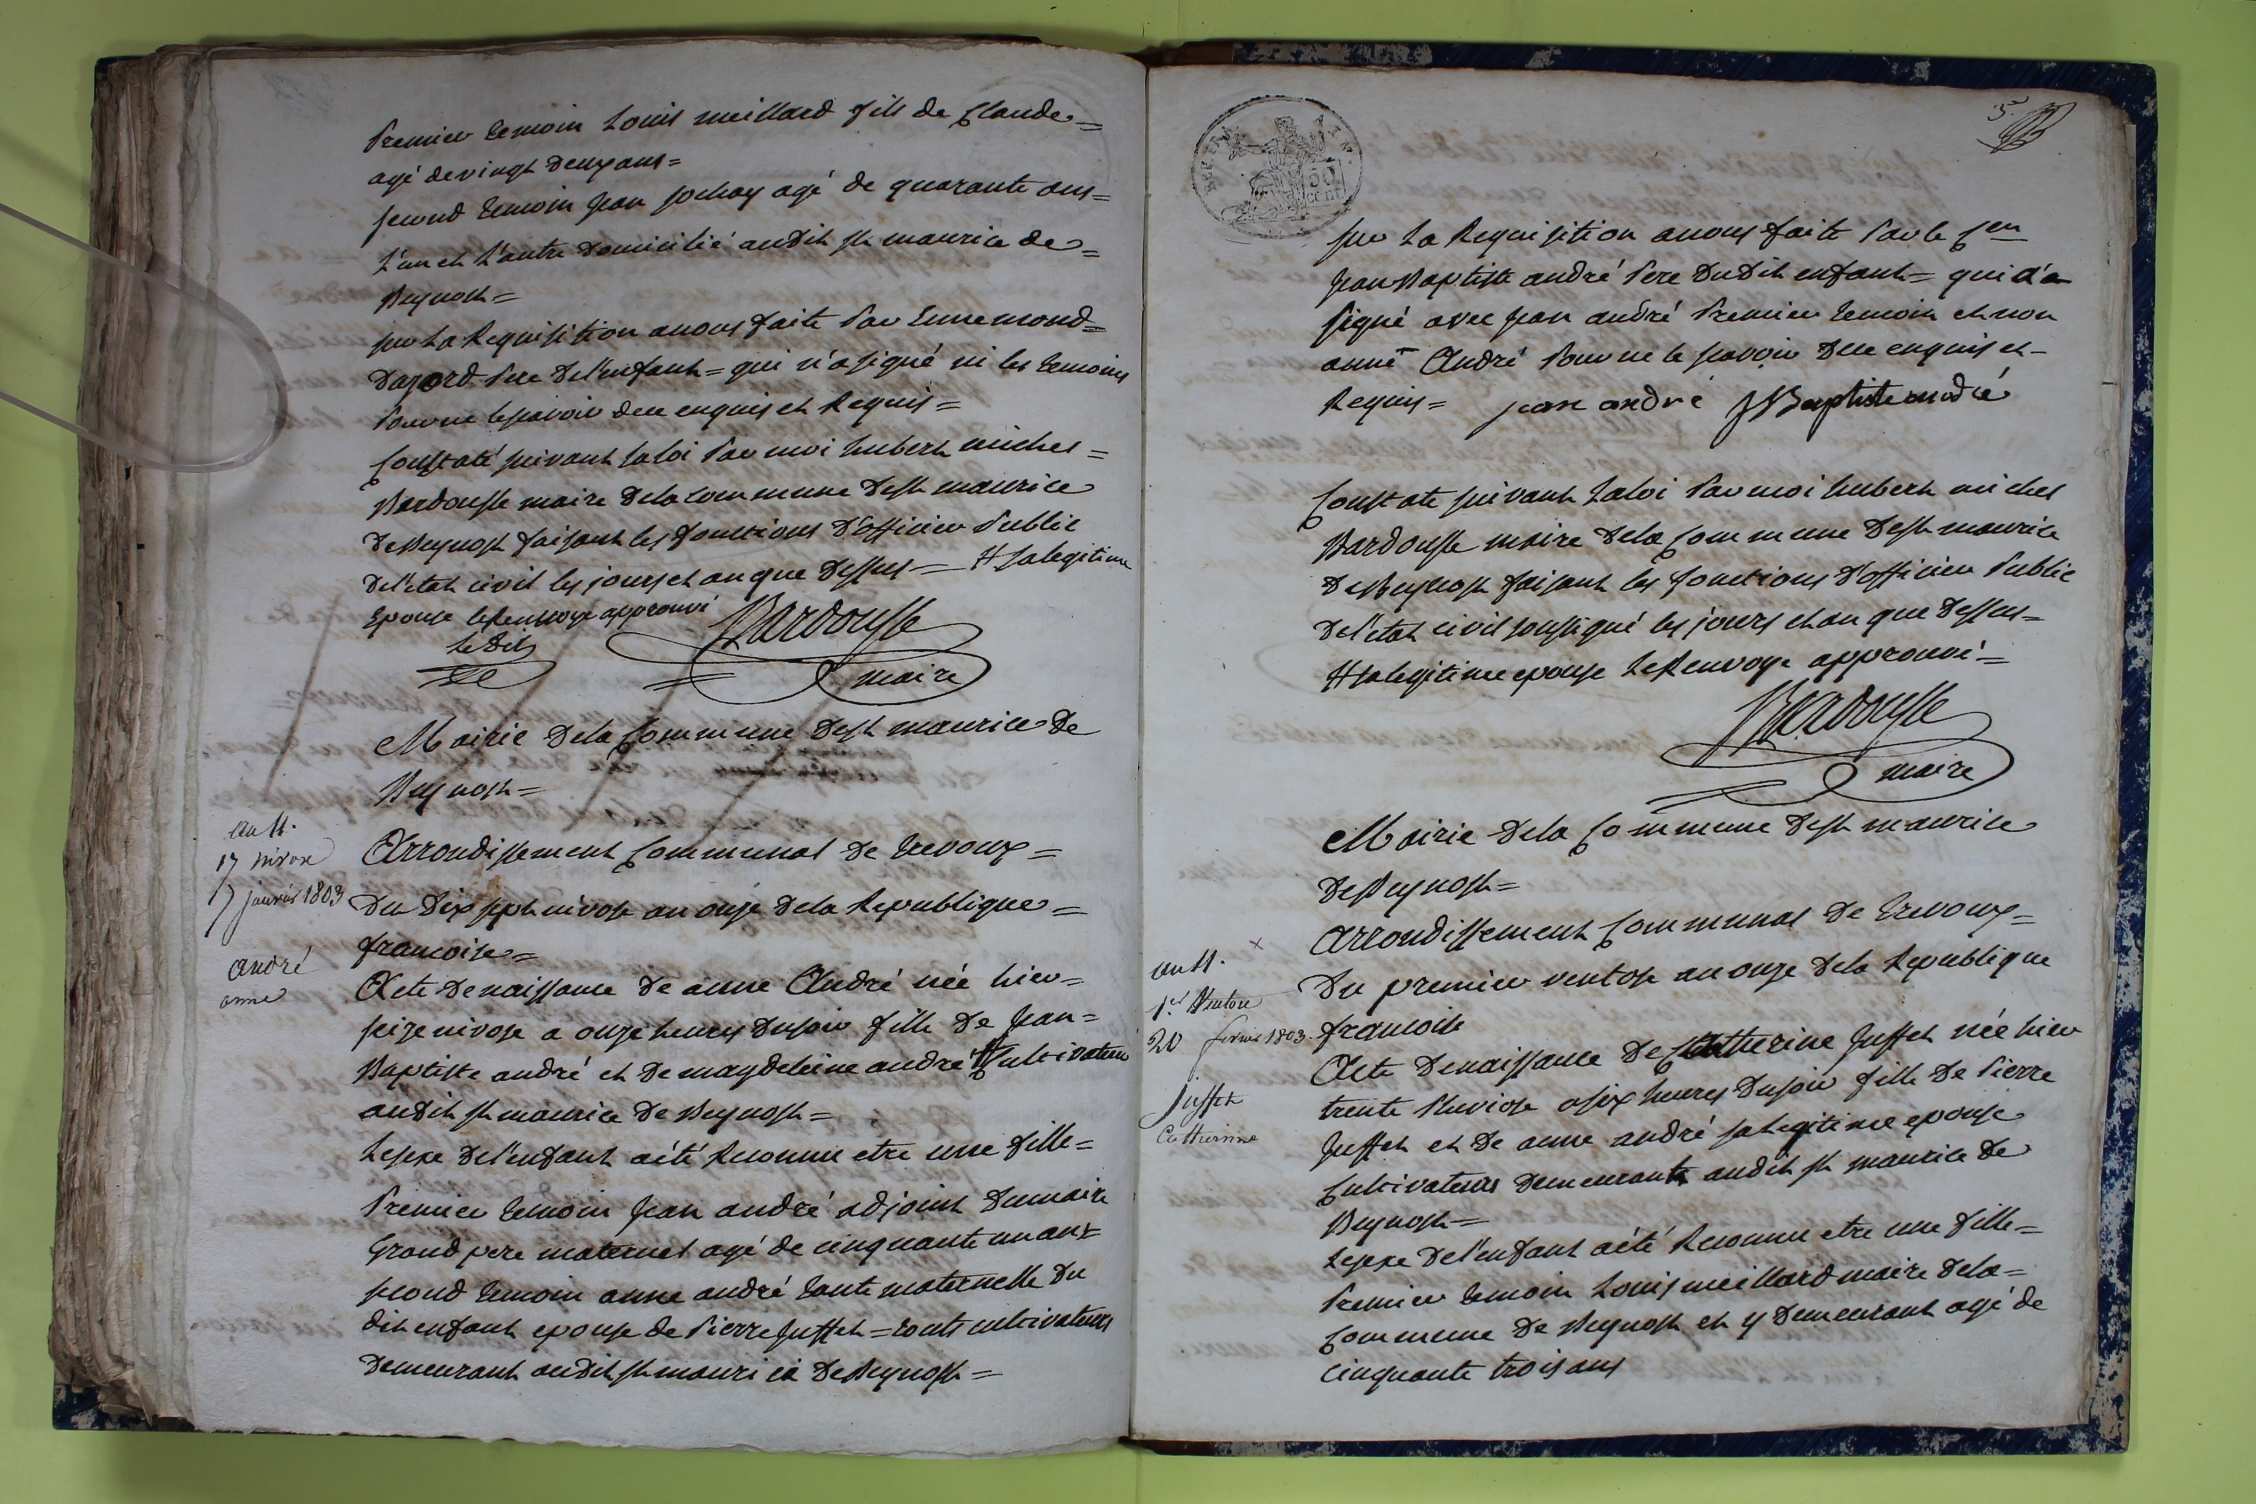 Premier temoin Louis meillard fils de Claude =
agé de vingt deux ans =
second temoin jean jochay agé de quarante ans =
l'un et l'autre domicilié audit st maurice de =
Beynost =
sur la Requisition a nous faite Par Ennemond =
Dazord Pere de l'enfant = qui n'a signé ni les temoins
Pour ne le savoir de ce enquis et Requis =
Constaté suivant la loi Par moi hubert michel =
Bardousse maire de la commune de st maurice
de Beynost faisant les fonctions d'officier Public
de l'etat civil les jours et an que dessus = # sa legitime
Epouse le Renvoye approuvé
Bardousse
maire
Mairie de la Commune de st maurice de
Beynost =
an 11.
17 nivose
7 janvier 1803
André
anne
Arrondissement Communal de trevoux =
Du Dix sept nivose an onze de la Republique =
francoise =
Acte de naissance de anne André née hier =
seize nivose a onze heures du soir fille de jean =
Baptiste andré et de magdeleine andré # Cultivateurs
audit st maurice de Beynost =
Le sexe de l'enfant a été Reconnu etre une fille =
Premier temoin jean andré adjoint du maire
Grand pere maternel agé de cinquante un ans
second temoin anne andré tante maternelle du
dit enfant epouse de Pierre juffet = touts cultivateurs
Demeurant audit st maurice de Beynost =
5
50
cent
sur la Requisition a nous faite Par le Cen
jean Baptiste andré Pere du dit enfant = qui a
signé avec jean andré Premier temoin et non
anne André Pour ne le savoir de ce enquis et =
Requis = jean andré JBaptiste andré
Constaté suivant la loi Par moi hubert michel
Bardousse maire de la Commune de st maurice
de Beynost faisant les fonctions d'officier Public
de l'etat civil soussigné les jours et an que dessus =
# sa legitime epouse le Renvoye approuvé =
Bardousse
maire
Mairie de la Commune de st maurice
de Beynost =
arrondissement Communal de trevoux =
an 11.
1er Ventose
20 fevrier 1803.
Juffet
Catherinne
Du premier ventose an onze de la Republique
francoise
Acte de naissance de Catherine juffet née hier
trente Pluviose a six heures du soir fille de Pierre
juffet et de anne andré sa legitime epouse
Cultivateurs demeurants audit st maurice de
Beynost =
Le sexe de l'enfant a été Reconnu etre une fille =
Premier temoin Louis meillard maire de la =
Commune de Beynost et y demeurant agé de
cinquante trois ans